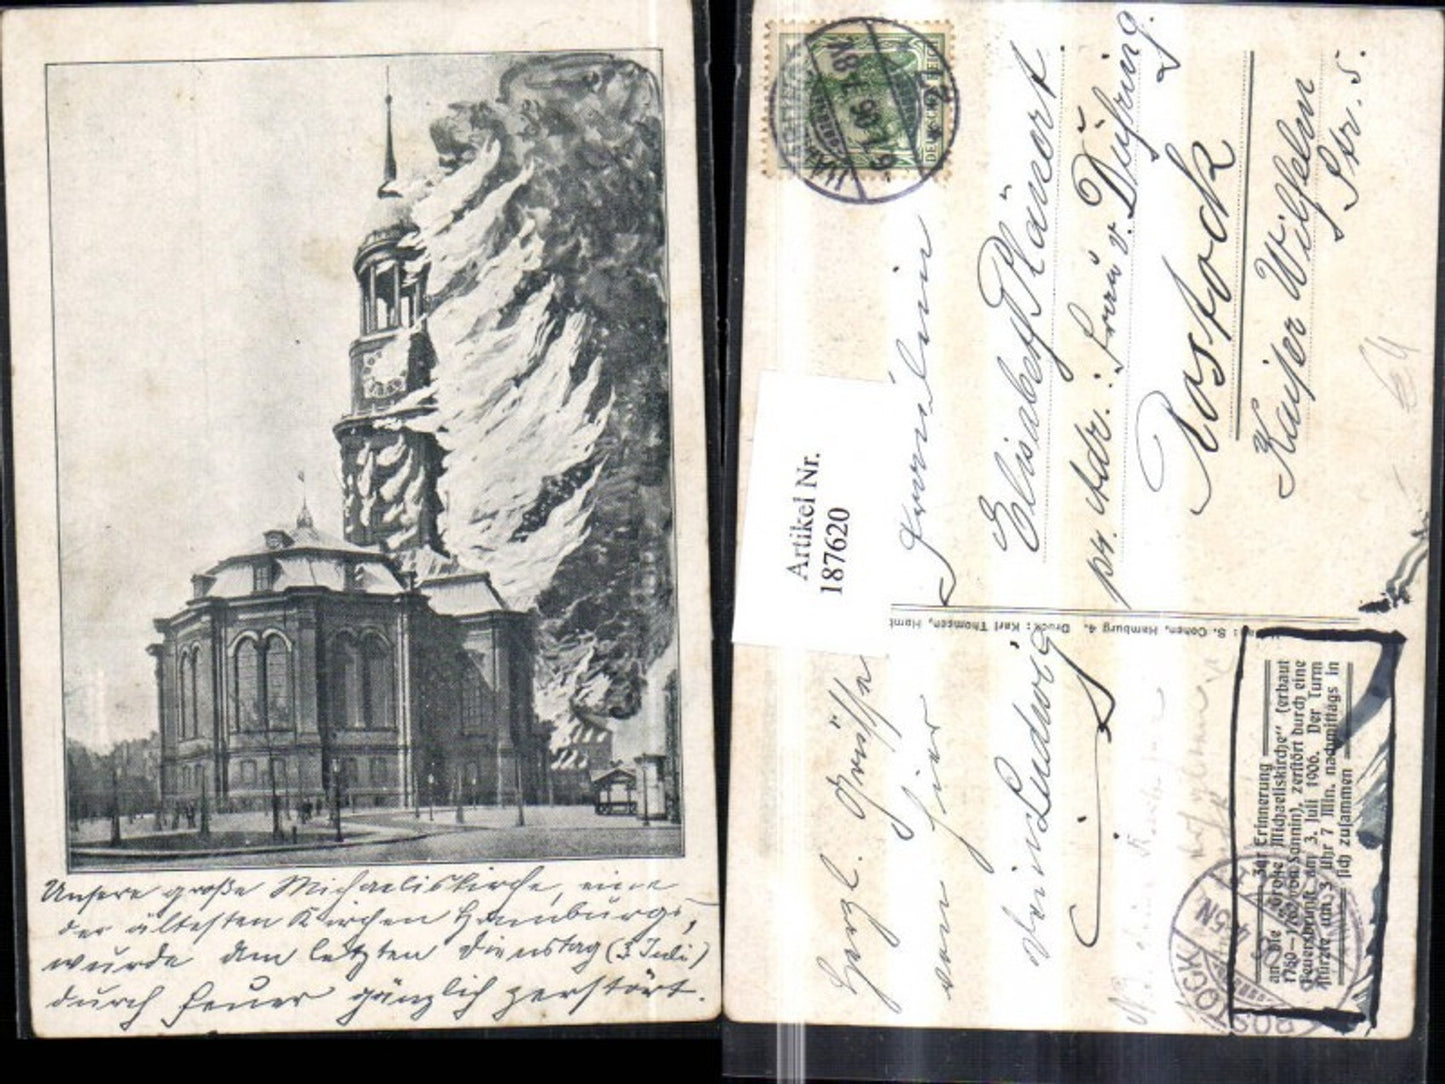 Unsere große Michaeliskirche, eine
der ältesten Kirchen Hamburgs,
wurde am letzten Dienstag (3 Juli)
durch Feuer gänzlich zerstört.
DEUTSCHES REICH
18
Artikel Nr.
187620
Fräulein
Elisabeth
pr. Adr.: Frau v. Dühring.
Rostock
Kaiser Wilhelm
Str. 5.
S. Cohen, Hamburg 4. Druck: Karl Thomsen, Hamb
Herzl. Grüsse
von hier
dein Ludwig
Zur Erinnerung
an die „Große Michaeliskirche“ (erbaut
1750–1762 von Sonnin), zerstört durch eine
Feuersbrunst am 3. Juli 1906. Der Turm
stürzte um 3 Uhr 7 Min. nachmittags in
sich zusammen
ROSTOCK
4-5N